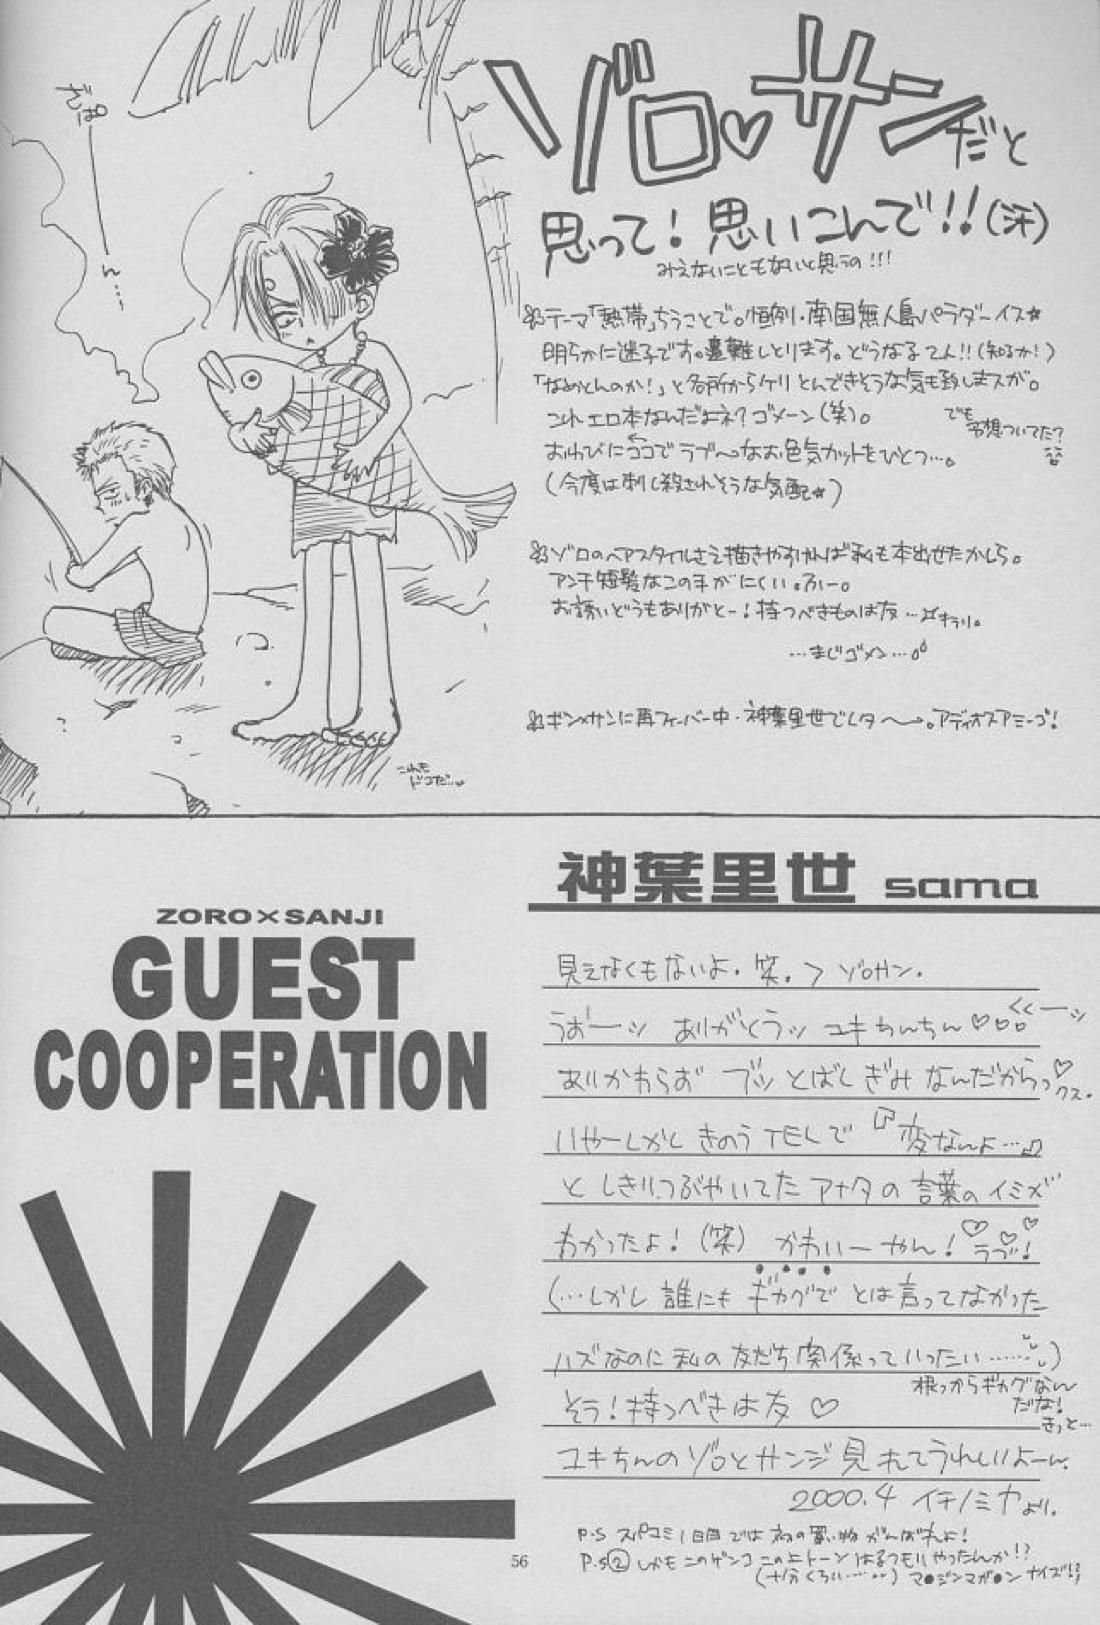 ゾロ♡サンだと
思って！思いこんで!!(汗)
みえないこともないと思うの!!!
テーマ「熱帯」ちうことで。恒例・南国無人島パラダーイス☆
明らかに迷子です。遭難しとります。どうなるてん!!(知るか!)
「なめとんのか!」と各所からケリとんできそうな気も致しまスが。
これエロ本なんだよネ？ゴメーン(笑)。
でも予想ついてた？
おわびにココでラブ〜なお色気カットをひとつ…。
(今度は刺し殺されそうな気配☆)
ゾロのヘアスタイルさえ描きやすければ私も本出せたかしら。
アンチ短髪なこの手がにくい。ふー。
お誘いどうもありがとー！持つべきものは友…キラリ。
…まじゴメン…
ギン×サンに再フィーバー中・神葉里世でしタ〜。アディオスアミーゴ!
これもドコだ…
ZORO×SANJI
GUEST
COOPERATION
神葉里世 sama
見えなくもないよ・笑。>ゾロサン.
うおーッ ありがとうッ ユキちんちん♡
くくーッ
あいかわらお ブッとばしぎみなんだからっ♡
クス.
いやーしかし きのうTELで『変なんよ…』
としきりにつぶやいてたアナタの言葉のイミが
わかったよ！(笑) かわいーやん！ラブ！
(…しかし誰にもギャグでとは言ってなかった
ハズなのに私の友だち関係っていったい……)
根っからギャグなんだな！きっと…
そう！持つべきは友♡
ユキちんのゾロとサンジ見れてうれしいよーん.
2000.4 イチノミヤより.
P.S スパコミ1日目では初の買い物がんばれよ！
P.S② しかもこのゲンコこの上トーンはるつもりやったんか!?
(十分くろい……) マ●ジンマガ●ン ナイズ!?
56